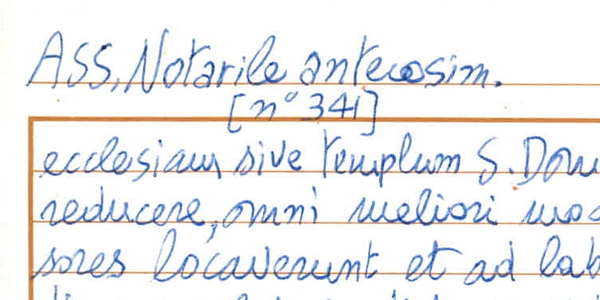 ASS, Notarile antecosim.
[n° 341]
ecclesiam sive templum S. Dom
reducere, omni meliori mod
sores locaverunt et ad lab